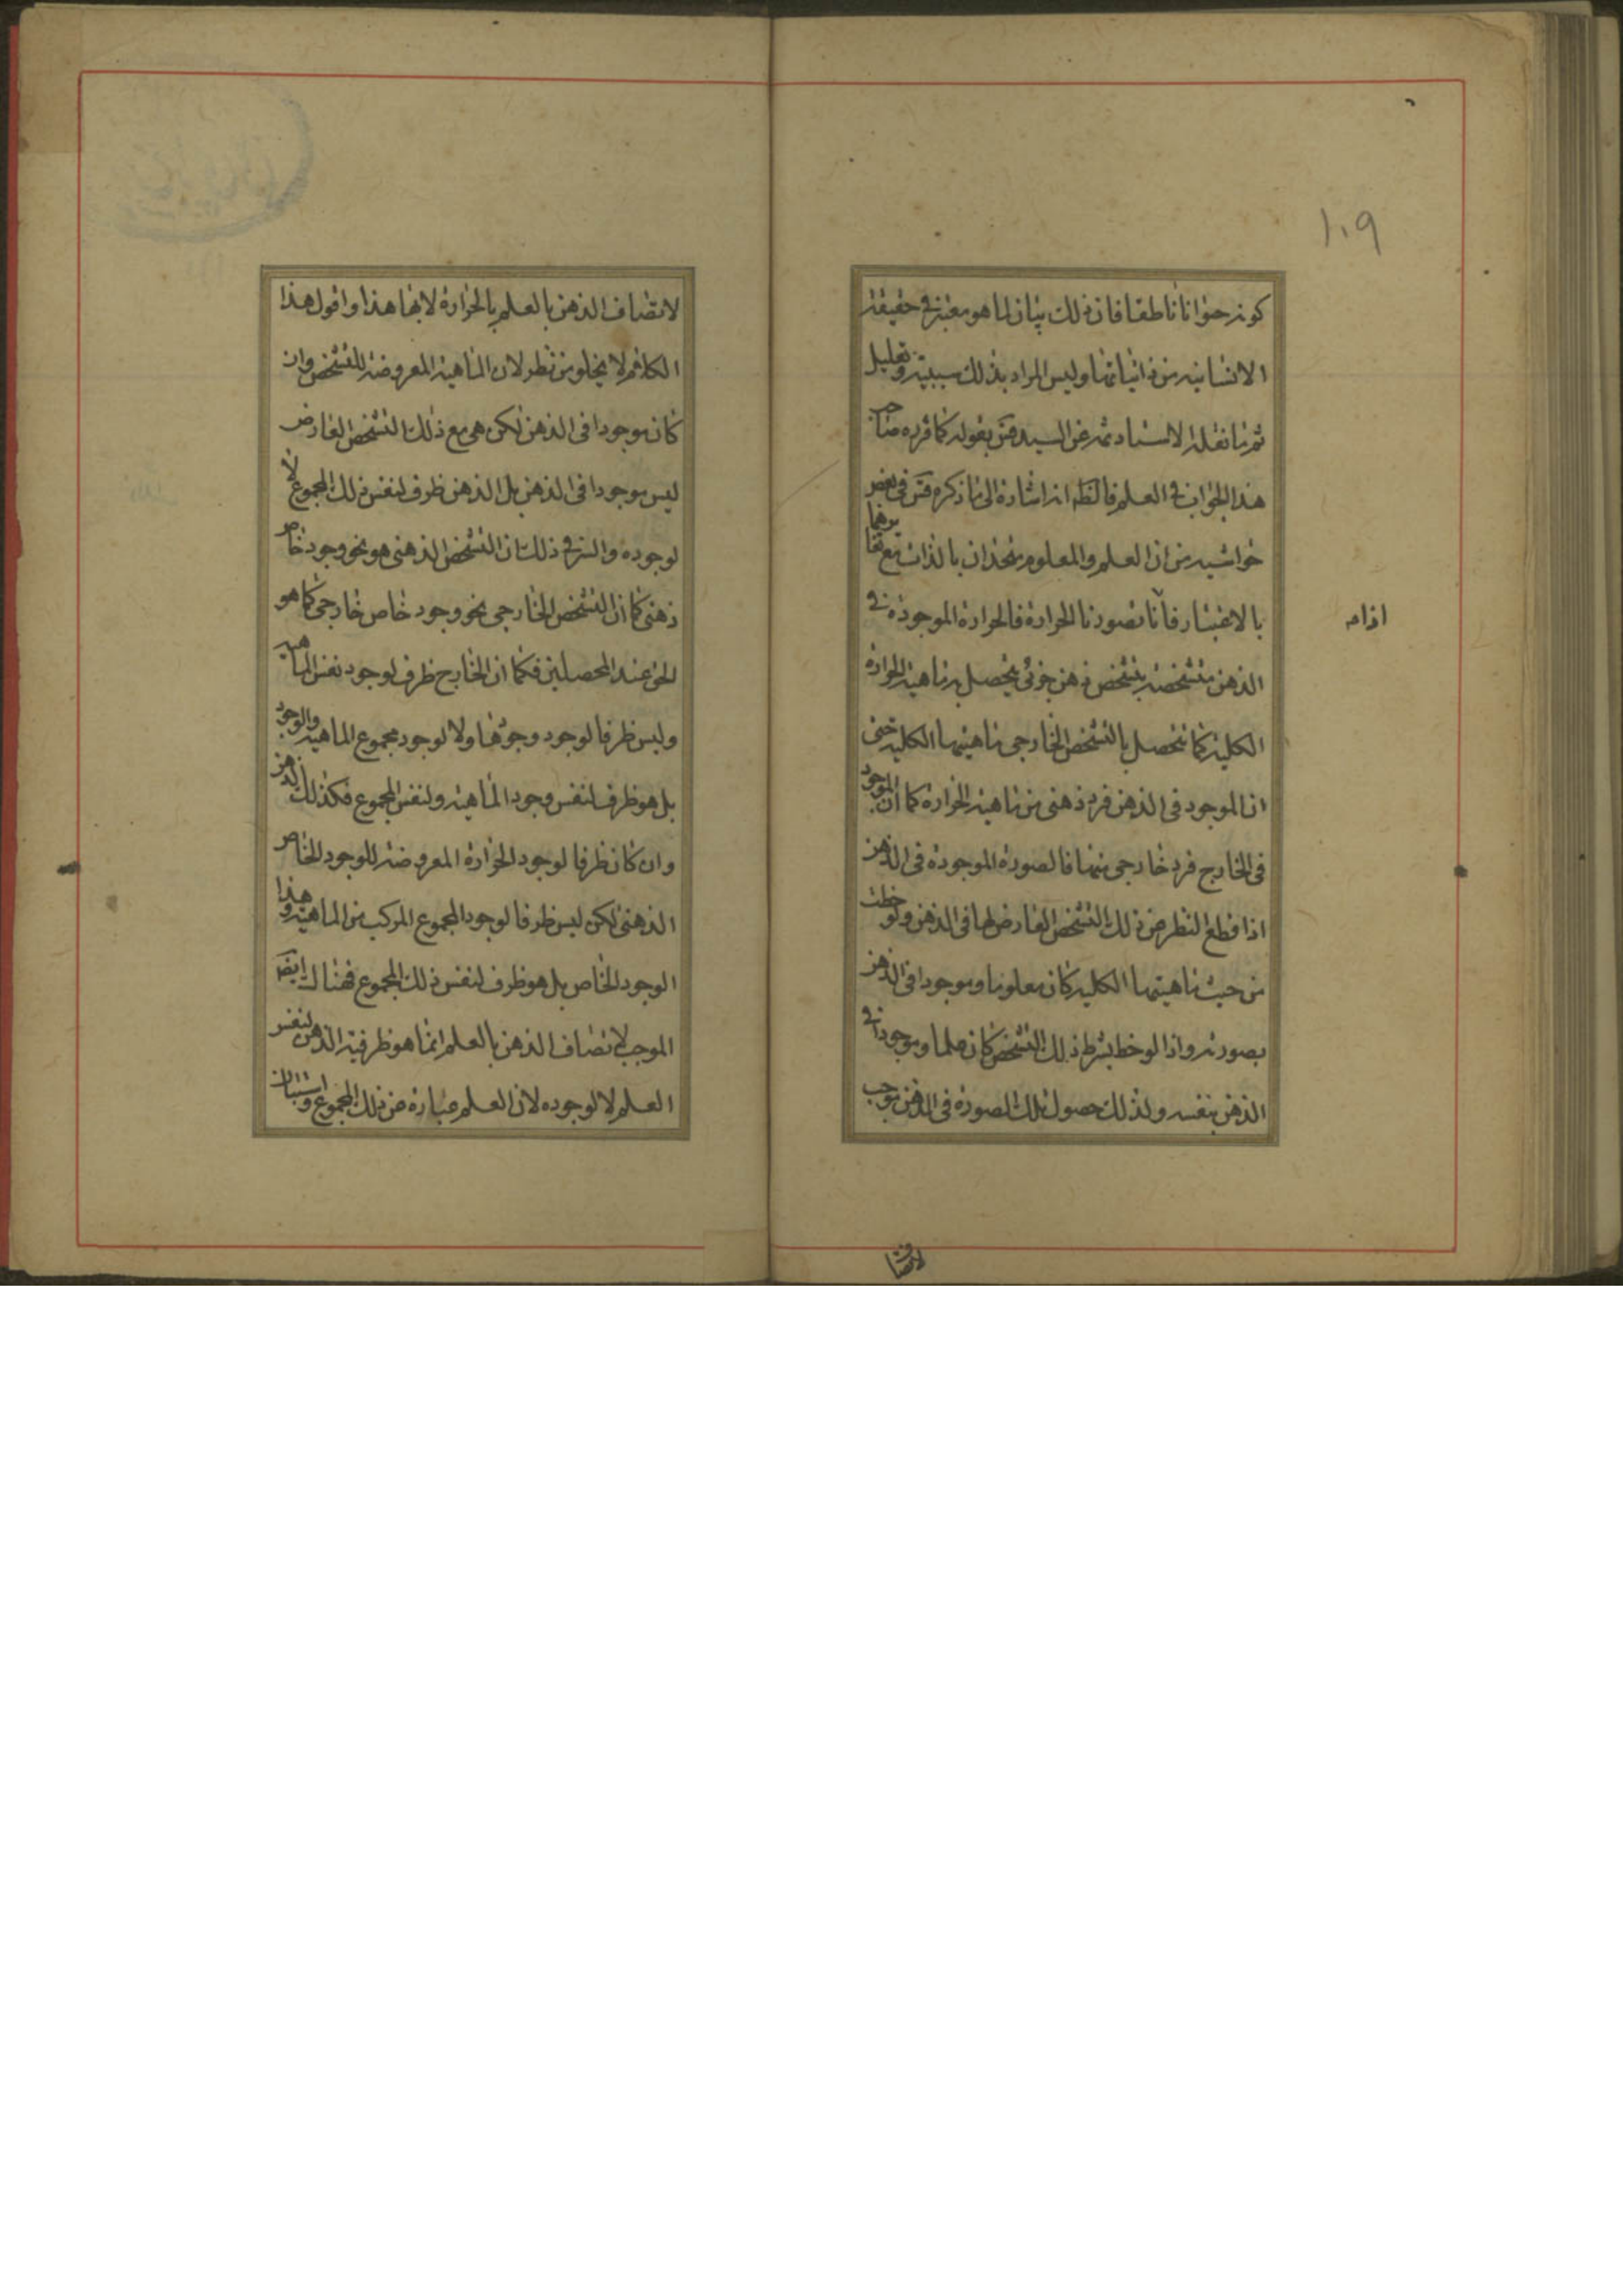 ١٠٩
كونه حيوانا ناطقا فان ذلك بيان لما هو معتبر في حقيقة
الانسانية من ذاتياتها وليس المراد بذلك سببية وتعليل
ثم ما نقله الاستاد عن السيد قس بقوله كما قرره صاحب
هذا الجواب في العلم فالظ انه اشارة الى ما ذكره قس في بعض
حواشيه من ان العلم والمعلوم متحدان بالذات مع تغايرهما
بالاعتبار فانا تصورنا الحرارة فالحرارة الموجودة في
اذا صه
الذهن متشخصة بتشخص ذهن جزئي يتحصل به ماهية الحرارة
الكلية كما تتحصل بالتشخص الخارجي ماهيتها الكلية حتى
ان الموجود في الذهن فرد ذهني من ماهية الحرارة كما ان الموجود
في الخارج فرد خارجي منها فالصورة الموجودة في الذهن
اذا قطع النظر عن ذلك التشخص العارض لها في الذهن ولوحظت
من حيث ماهيتها الكلية كان معلوما وموجودا في الذهن
بصورته واذا لوحظ بشرط ذلك التشخص كان علما وموجودا في
الذهن بنفسه ولذلك حصول تلك الصورة في الذهن موجب
لاتصاف
لاتصاف الذهن بالعلم بالحرارة لا بها هذا واقول هذا
الكلام لا يخلو من نظر لان الماهية المعروضة للتشخص وان
كان موجودا في الذهن لكن هي مع ذلك التشخص العارض
ليس موجودا في الذهن بل الذهن ظرف لنفس ذلك المجموع لا
لوجوده والسر في ذلك ان التشخص الذهني هو نحو وجود خاص
ذهني كما ان التشخص الخارجي نحو وجود خاص خارجي كما هو
الحق عند المحصلين فكما ان الخارج ظرف لوجود نفس الماهية
وليس ظرفا لوجود وجودها ولا لوجود مجموع الماهية والوجود
بل هو ظرف لنفس وجود الماهية ولنفس المجموع فكذلك الذهن
وان كان ظرفا لوجود الحرارة المعروضة للوجود الخاص
الذهني لكن ليس ظرفا لوجود المجموع المركب من الماهية وهذا
الوجود الخاص بل هو ظرف لنفس ذلك المجموع فهناك ايضا
الموجب لاتصاف الذهن بالعلم انما هو ظرفية الذهن لنفس
العلم لا لوجوده لان العلم عبارة عن ذلك المجموع واستبان